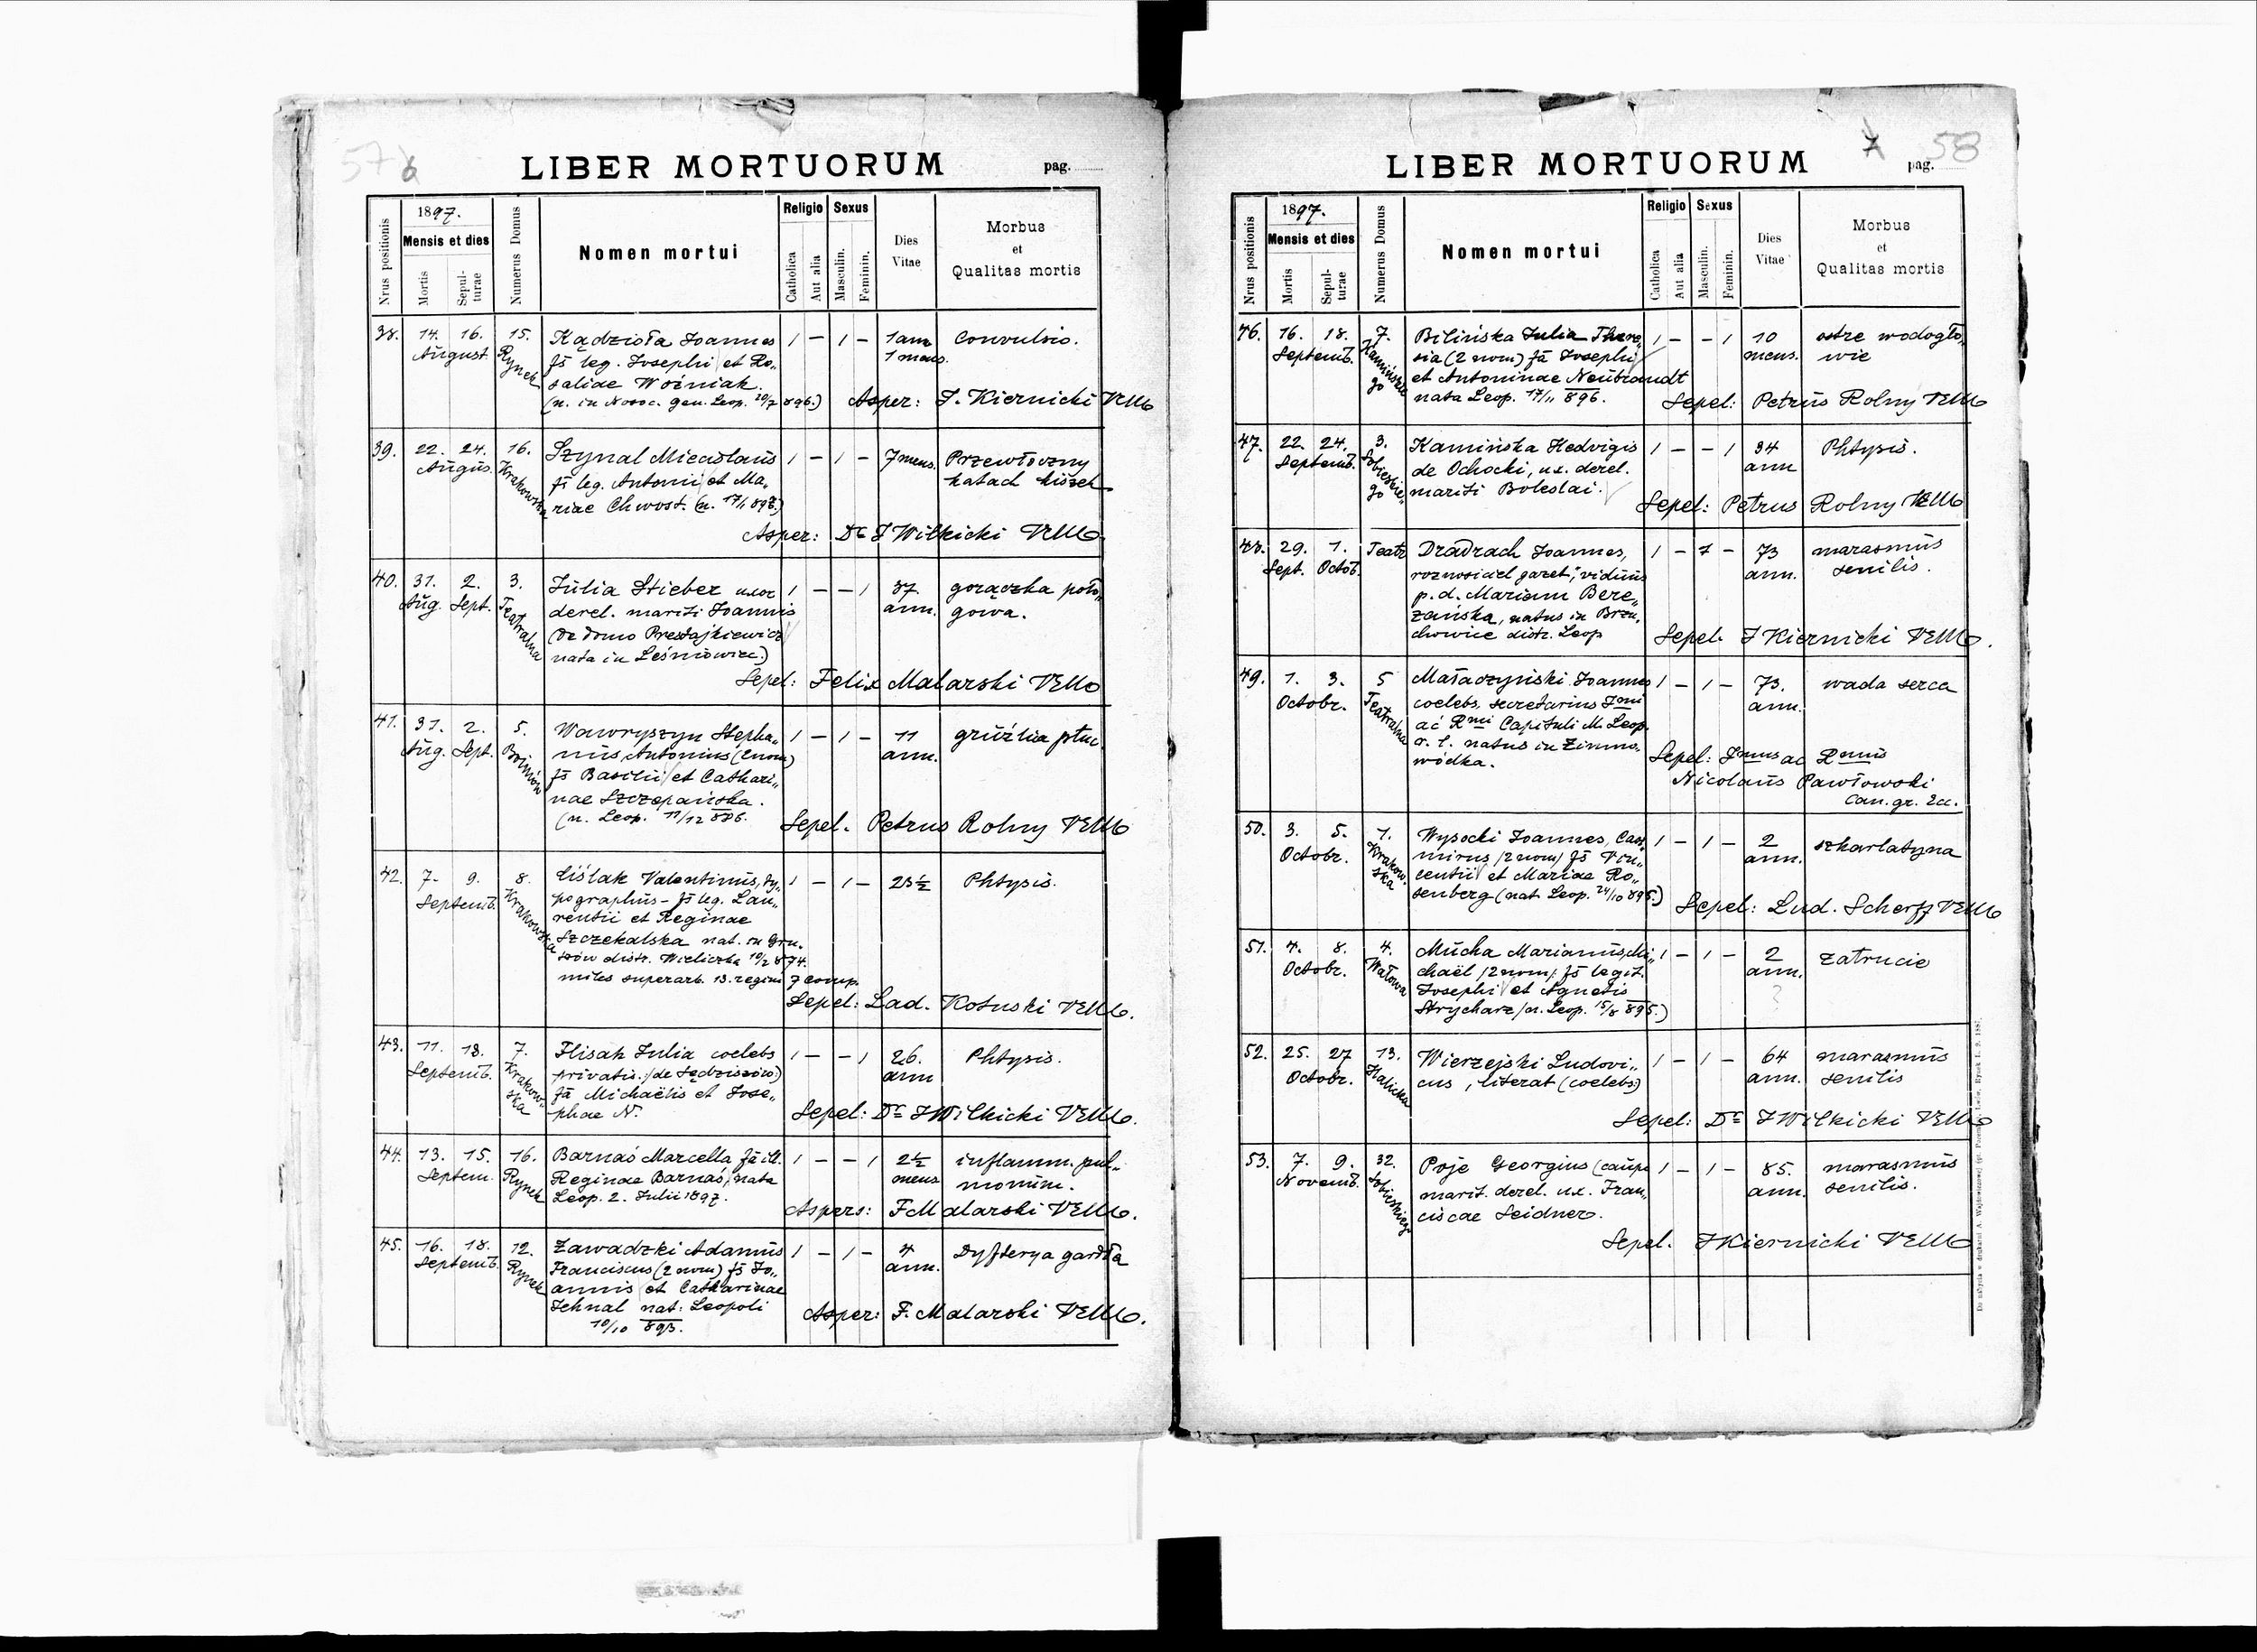 57 6
LIBER MORTUORUM pag.
Nrus positionis
1897.
Mensis et dies
Mortis
Sepulturae
Numerus Domus
Nomen mortui
Religio
Catholica
Aut alia
Sexus
Masculin.
Feminin.
Dies Vitae
Morbus
et
Qualitas mortis
38. 14. 16. 15. Kądzioła Joannes 1 – 1 – 1 ann Convulsio.
August Rynek fs leg. Josephi et Ro„ 1 mens.
saliae Woźniak.
(n. in Nosoc. gen. Leop. 20/7 896.) Asper: J. Kiernicki VEMb
39. 22. 24. 16. Szynal Miecislaus 1 – 1 – 7 mens. Przewłoczny
Augus. Krakowska fs leg. Antonii et Ma„ katach kiszek
riae Chwost. (n. 17/1 897.)
Asper: Dr J Wilkicki VEMb.
40. 31. 2. 3. Julia Stieber uxor 1 – – 1 37. gorączka poło„
Aug. Sept. Teatralna derel. mariti Joannis ann. gowa.
(de domo Prestajkiewicz
nata in Leśniowiec.)
Sepel: Felix Malarski VEMb
41. 31. 2. 5. Wawryszyn Stepha„ 1 – 1 – 11 gruźlica płuc.
Aug. Sept. Boimów nus, Antonius (2 nom) ann.
fs Basilii et Cathari„
nae Szczepańska.
(n. Leop. 11/12 886. Sepel. Petrus Rolny VEMb
42. 7. 9. 8. Liślak Valentinus, ty„ 1 – 1 – 23½ Phtysis.
Septemb. Krakowska pographus – fs leg. Lau„
rentii et Reginae
Szczekalska nat. in Gru„
szów distr. Wieliczka 10/2 874.
miles superarb. 13. regim 7 comp.
Sepel: Lad. Kotuski VEMb.
43. 11. 13. 7. Flisak Julia coelebs 1 – – 1 26. Phtysis.
Septemb. Krakowska privatis. (de Sędziszów) ann
fa Michaëlis et Jose„
phae N. Sepel: Dr J Wilkicki VEMb.
44. 13. 15. 16. Barnaś Marcella fa ill. 1 – – 1 2½ inflamm. pul„
Septem. Rynek Reginae Barnaś, nata mens monum.
Leop. 2. Julii 1897. Aspers: F Malarski VEMb.
45. 16. 18. 12. Zawadzki Adamus 1 – 1 – 4 Dyfterya gardła
Septemb. Rynek Franciscus (2 nom) fs Jo„ ann.
annis et Catharinae
Schnal nat: Leopoli
10/10 893. Asper: F. Malarski VEMb.
7 58
LIBER MORTUORUM pag.
Nrus positionis
1897.
Mensis et dies
Mortis
Sepulturae
Numerus Domus
Nomen mortui
Religio
Catholica
Aut alia
Sexus
Masculin.
Feminin.
Dies Vitae
Morbus
et
Qualitas mortis
46. 16. 18. 7. Bilińska Julia There„ 1 – – 1 10 ostre wodogło„
Septemb. Kamińskiego sia (2 nom) fa Josephi mens. wie
et Antoninae Neubrandt
nata Leop. 17/11 896. Sepel: Petrus Rolny VEMb
47. 22. 24. 3. Kamińska Hedvigis 1 – – 1 34 Phtysis.
Septemb. Sobieskiego de Ochocki, ux. derel. ann
mariti Boleslai.
Sepel: Petrus Rolny VEMb
48. 29. 1. Teatr Dradrach Joannes, 1 – 1 – 73 marasmus
Sept. Octob. roznosiciel gazet, viduus ann. senilis.
p. d. Mariam Bere„
zańska, natus in Brzu„
chowice distr. Leop Sepel. J Kiernicki VEMb.
49. 1. 3. 5 Małaczyński Joannes 1 – 1 – 73. wada serca
Octobr. Teatralna coelebs, secretarius Jmi ann.
ac Rmi Capituli M. Leop.
r. l. natus in Zimno„
wódka. Sepel: Jmus ac Rmus
Nicolaus Pawłowski
Can. gr. Lec.
50. 3. 5. 1. Wysocki Joannes, Casi„ 1 – 1 – 2 szkarlatyna
Octobr. Krakowska mirus (2 nom) fs Vin„ ann.
centii et Mariae Ro„
senberg (nat Leop. 24/10 895.) Sepel: Lud. Scherff VEMb
51. 4. 8. 4. Mucha Marianus, Mi„ 1 – 1 – 2 zatrucie
Octobr. Wałowa chaël (2 nom) fs legit. ann.
Josephi et Agnetis ?
Strycharz (n. Leop. 15/8 895.)
52. 25. 27 13. Wierzejski Ludovi„ 1 – 1 – 64 marasmus
Octobr. Halicka cus, literat (coelebs) ann. senilis
Sepel: Dr J Wilkicki VEMb
53. 7. 9. 32. Poje Georgius (caupo 1 – 1 – 85. marasmus
Novemb. Sobieskiego marit. derel. ux. Fran„ ann. senilis.
ciscae Seidner.
Sepel. J Kiernicki VEMb